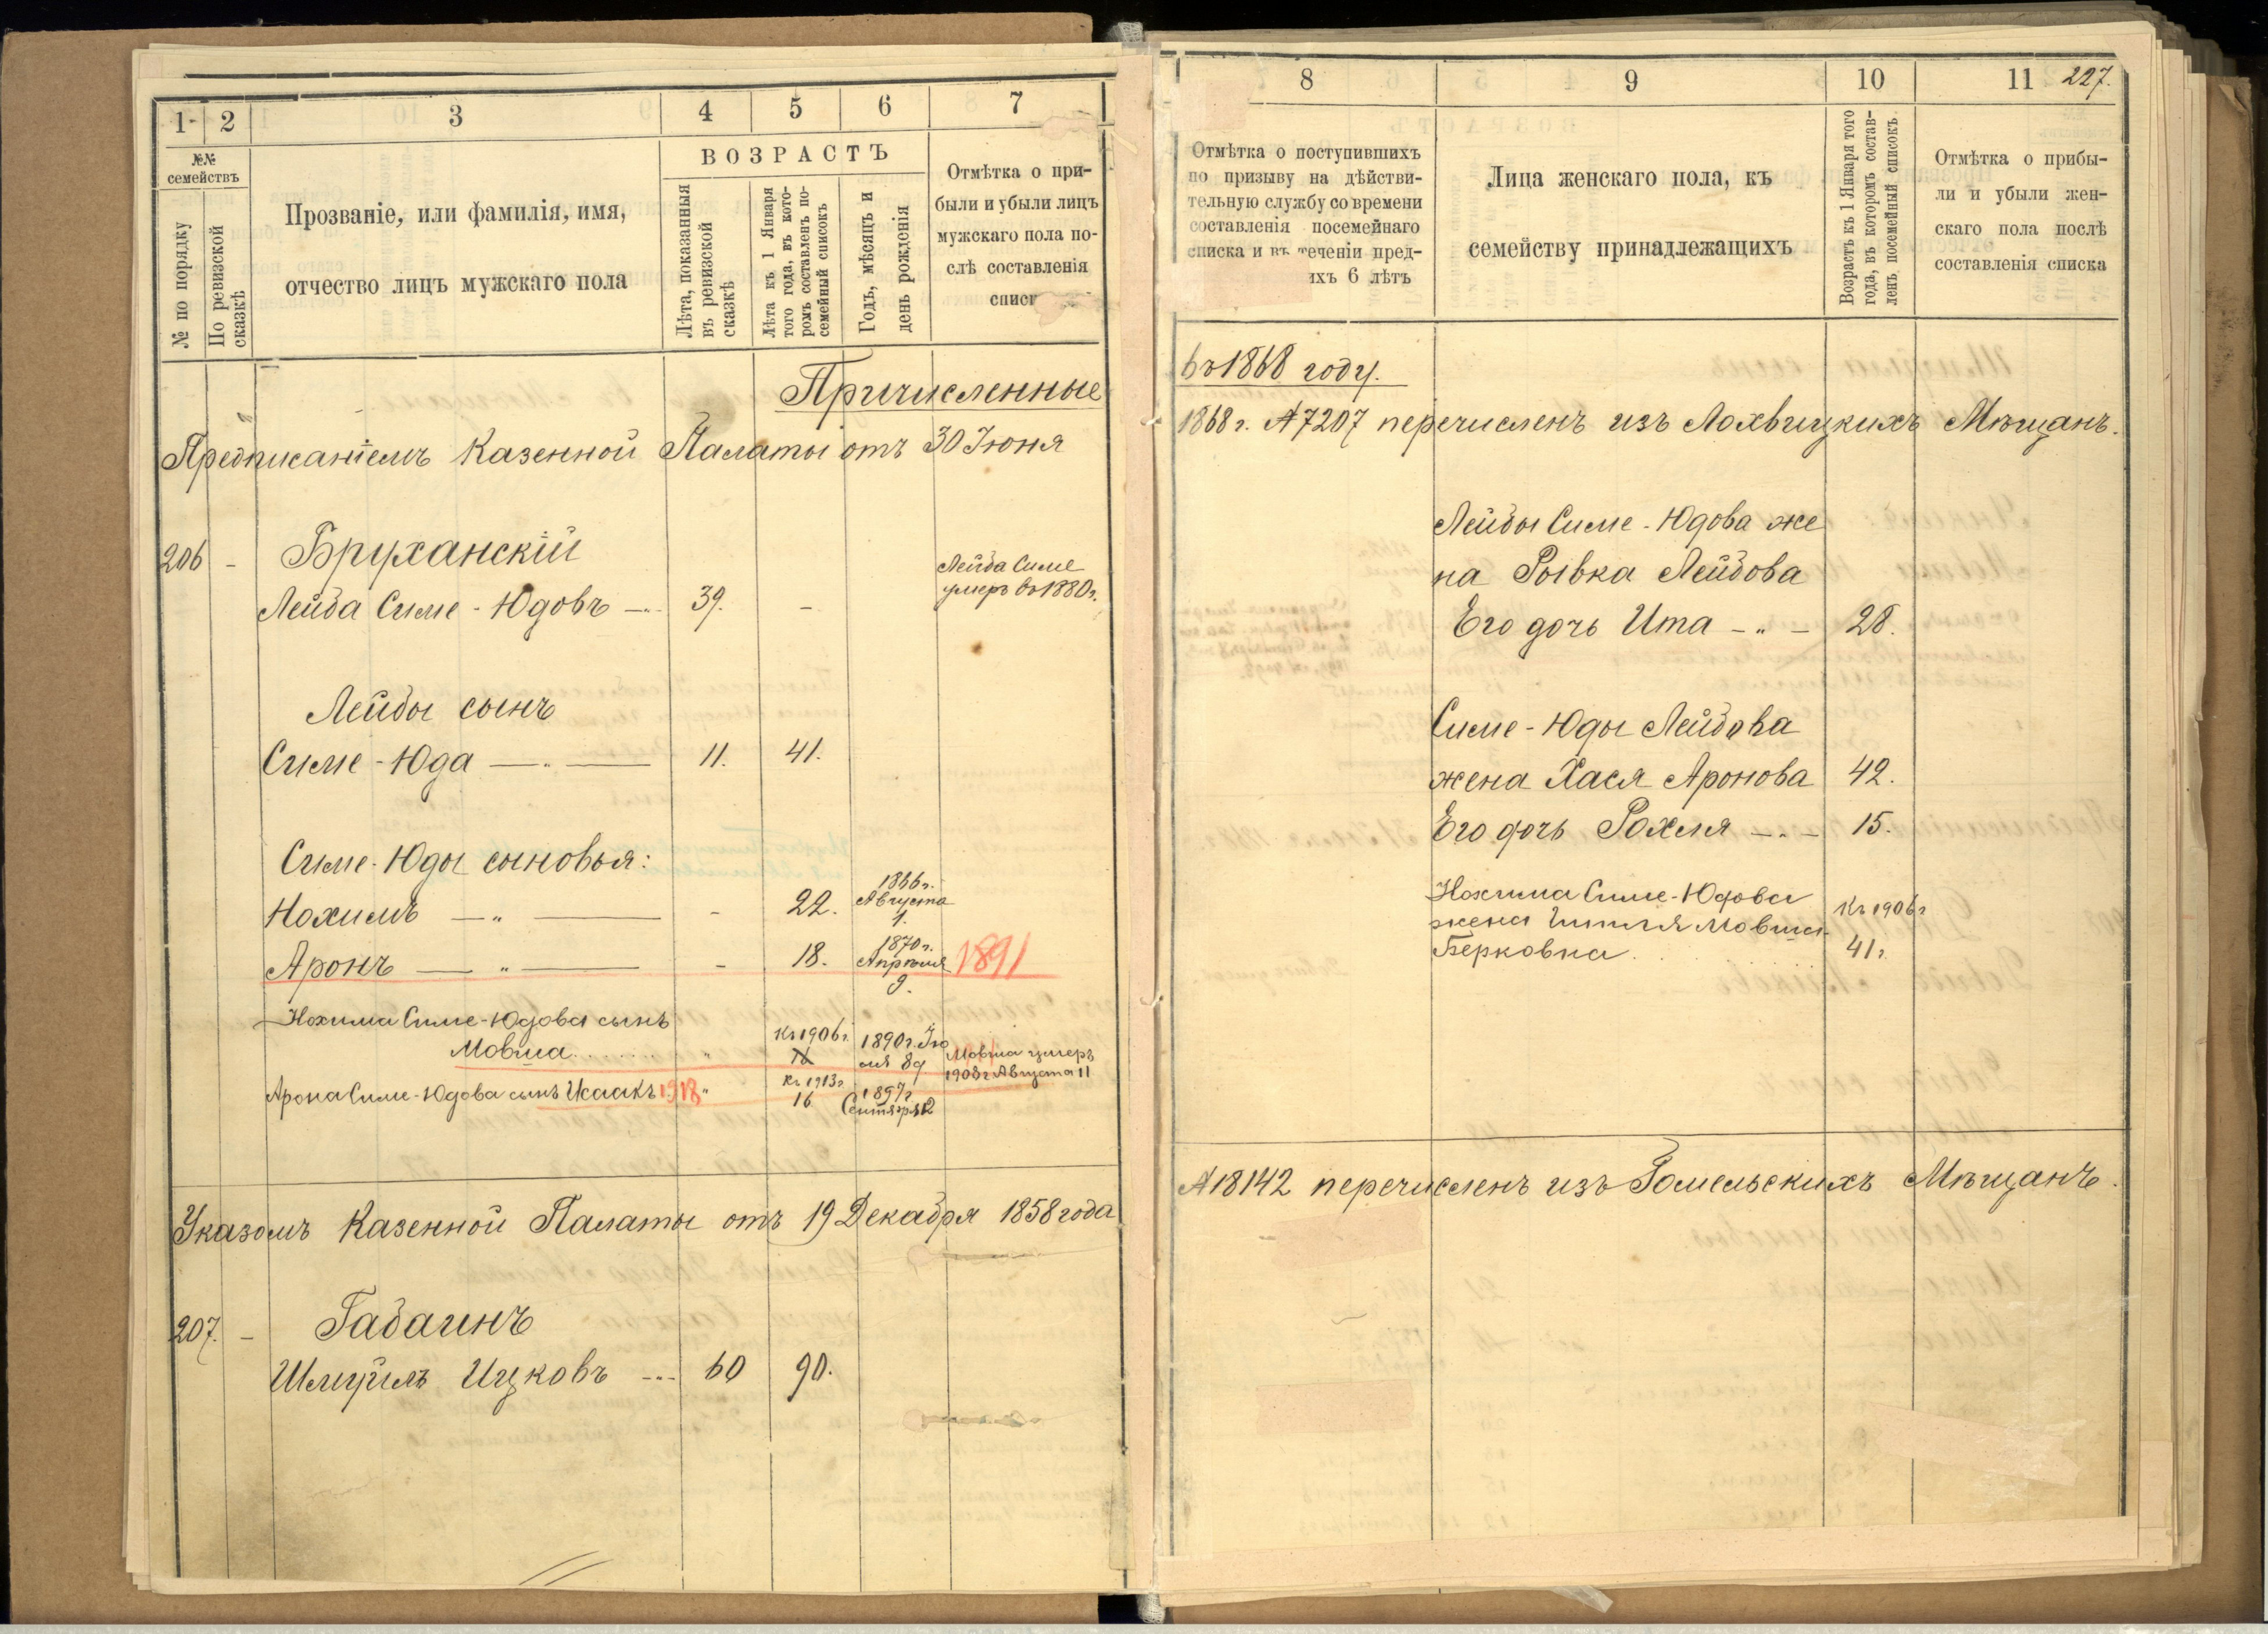 1 2 3 4 5 6 7
№№ семействъ
№ по порядку
По ревизской сказкѣ
Прозваніе, или фамилія, имя,
отчество лицъ мужскаго пола
ВОЗРАСТЪ
Лѣта, показанныя
въ ревизской
сказкѣ
Лѣта къ 1 Января
того года, въ кото-
ромъ составленъ по-
семейный списокъ
Годъ, мѣсяцъ и
день рожденія
Отмѣтка о при-
были и убыли лицъ
мужскаго пола по-
слѣ составленія
списк
Причисленные
Предписаніемъ Казенной Палаты отъ 30 Іюня
206 - Бруханскій
Лейба Симе-Юдовъ 39. -
Лейба Симе
умеръ въ 1880 г.
Лейбы сынъ
Симе-Юда 11. 41.
Симе-Юды сыновья:
Нохимъ - 22. 1866 г. Августа 1.
Аронъ - 18. 1870 г. Апрѣля 9. 1891
Нохима Симе-Юдова сынъ
Мовша Къ 1906 г. 1890 г. Іюля 8 д
Мовша умеръ
1908 г Августа 11
Арона Симе-Юдова сынъ Исаакъ 1918 Къ 1913 г 16 1897 г Сентября 2
Указомъ Казенной Палаты отъ 19 Декабря 1858 года
207. - Габаинъ
Шмуйлъ Ицковъ 60 90.
8 9 10 11 227.
Отмѣтка о поступившихъ
по призыву на дѣйстви-
тельную службу со времени
составленія посемейнаго
списка и въ теченіи пред-
ихъ 6 лѣтъ
Лица женскаго пола, къ
семейству принадлежащихъ
Возрастъ къ 1 Января того
года, въ которомъ состав-
ленъ посемейный списокъ.
Отмѣтка о прибы-
ли и убыли жен-
скаго пола послѣ
составленія списка
въ 1868 году.
1868 г. №7207 перечисленъ изъ Лохвицкихъ Мѣщанъ.
Лейбы Симе-Юдова же
на Рывка Лейбова
Его дочь Ита 28.
Симе-Юды Лейбова
жена Хася Аронова 42.
Его дочь Рохля 15.
Нохима Симе-Юдова
жена Гитля Мовша- Къ 1906 г
Берковна. 41 г.
№18142 перечисленъ изъ Гомельскихъ Мѣщанъ.